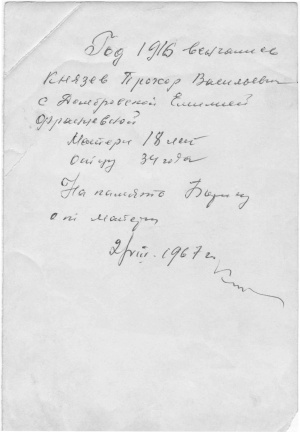 Год 1916 венчались
Князев Прохор Васильевич
с Домбровской Емилией
Францевной
Матери 18 лет
отцу 34 года
На память Борису
от матери
2/VIII. 1967 г.